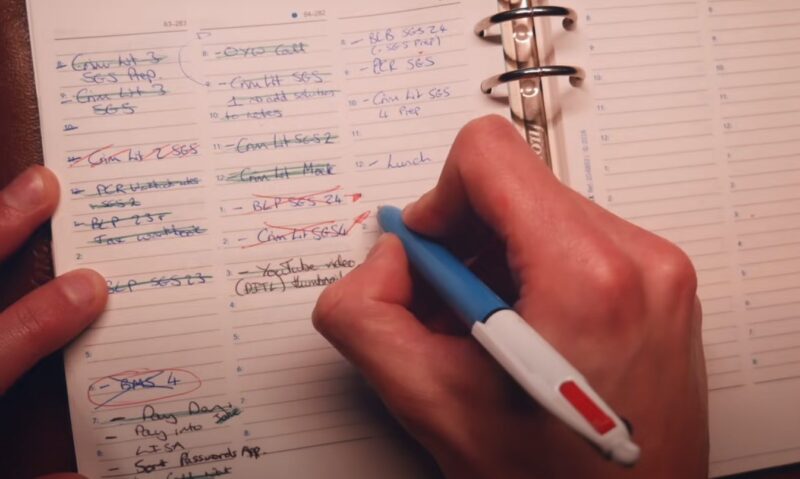 83-283
8 - Crim Lit 3
SGS Prep.
9 - Crim Lit 3
SGS
10
11 - Crim Lit 2 SGS
12 - PCR
SGS 2
1 - BLP 23
workbook
2
BLP SGS 23
5
6 - BMS 4
7 - Pay Day
- Pay into
8 LISA
- Sort Passwords App.
84-282
8 - OYO Call
9 - Crim Lit SGS
1 add solution
10 to notes
11 - Crim Lit SGS 2
12 - Crim Lit Mock
1 - BLP SGS 24
2 - Crim Lit SGS 4
3 - YouTube video
(DITL) thumbnail
4
5
6
7
8
8 - BLB SGS 24
(+SGS Prep)
9 - PCR SGS
10 - Crim Lit SGS
4 Prep
11
12 - Lunch
1
2